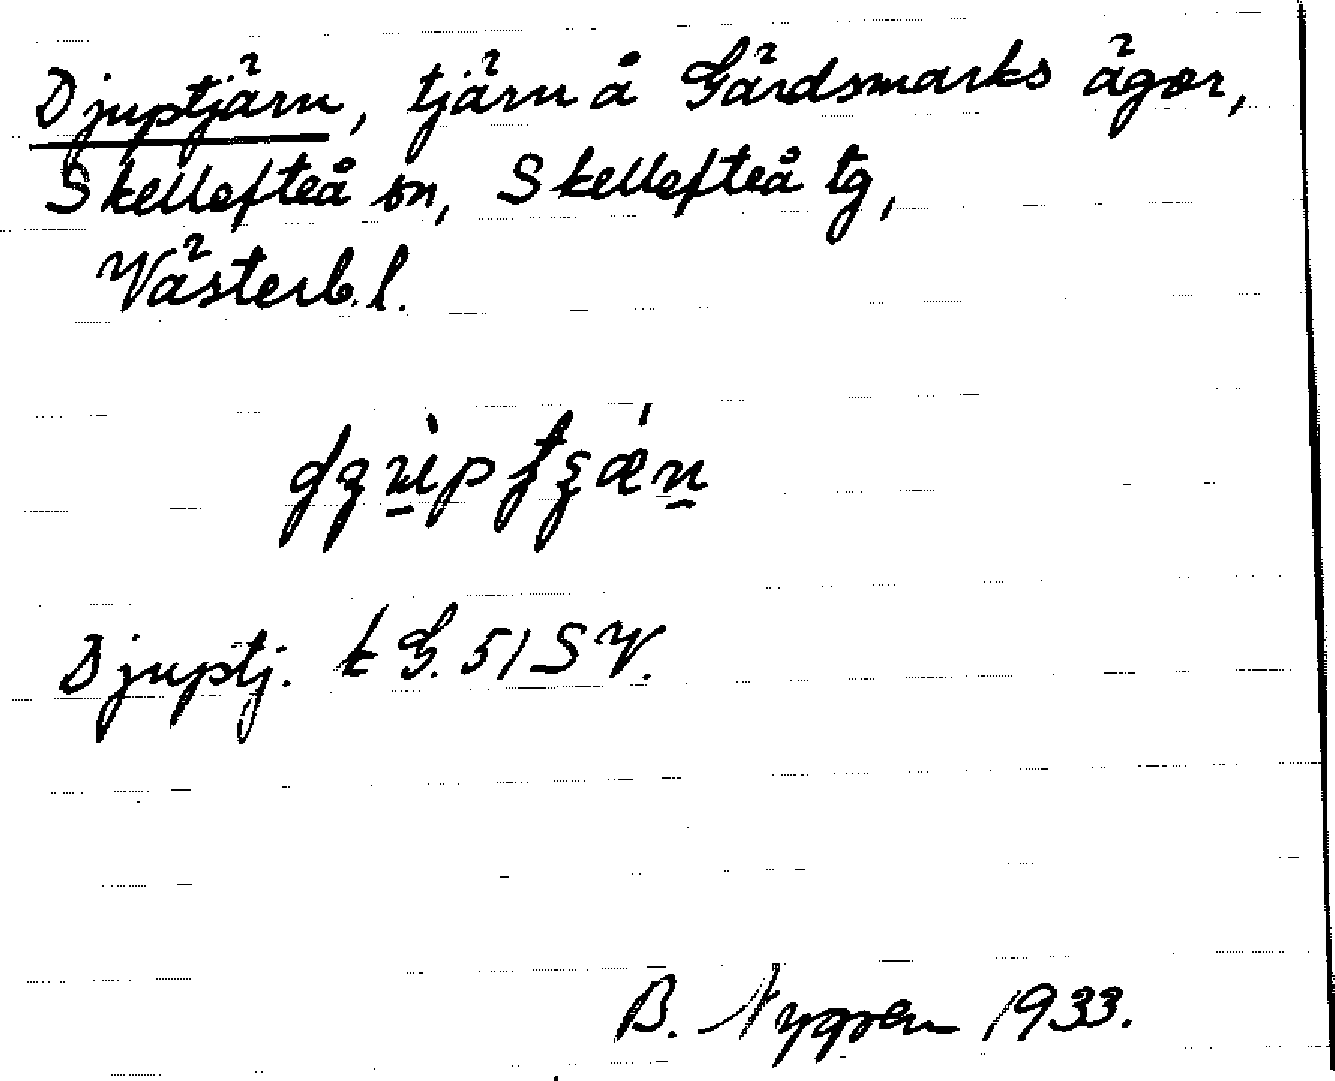 Djuptjärn, tjärn å Gärdsmarks ägor,
Skellefteå sn, Skellefteå tg,
Västerb. l.
Djuptj. t G. 51 SV.
B. Nygren 1933.